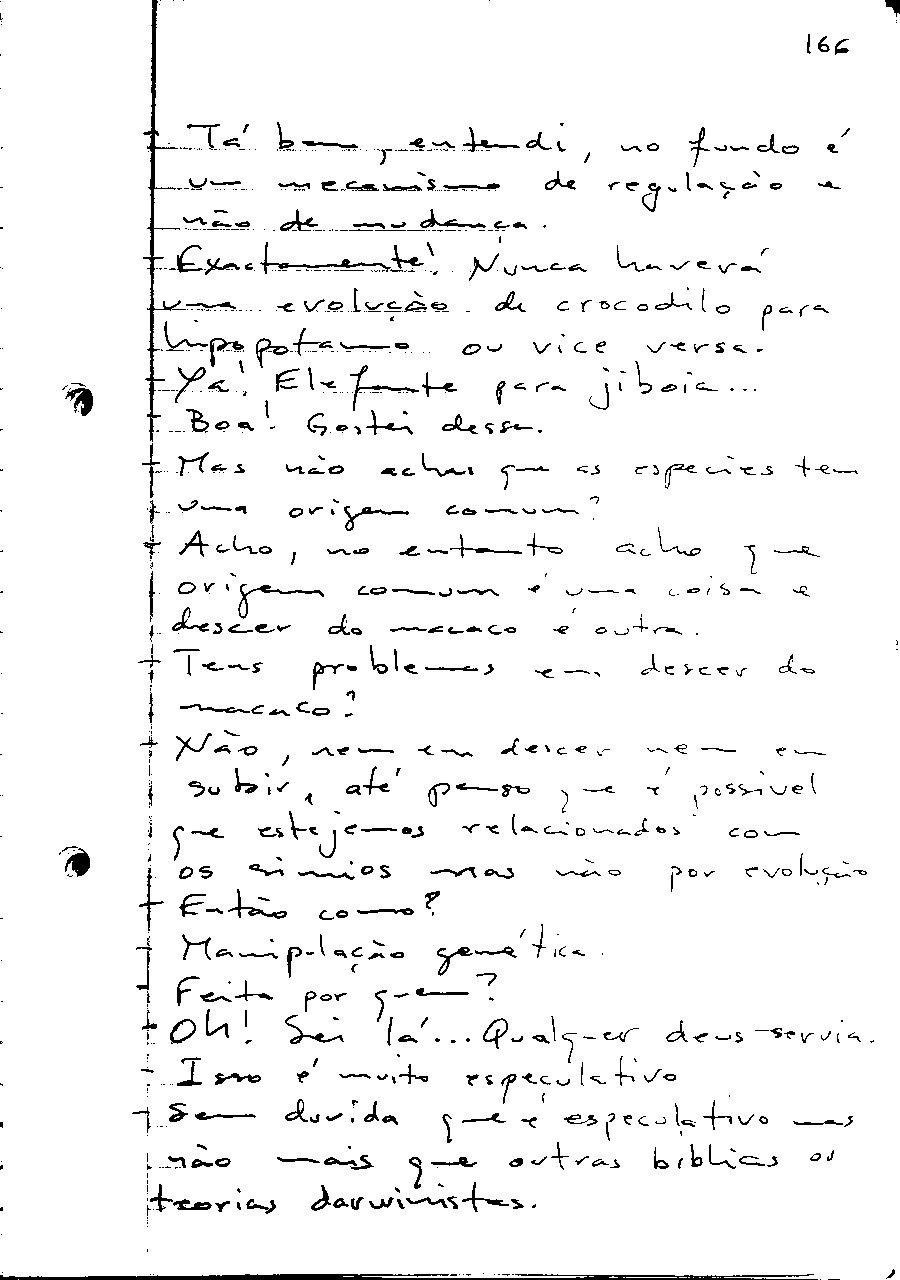 166
- Tá bem, entendi, no fundo é
um mecanismo de regulação e
não de mudança.
- Exactamente! Nunca haverá
uma evolução de crocodilo para
hipopotamo ou vice versa.
- Ya! Elefante para jiboia...
- Boa! Gostei dessa.
- Mas não achas que as especies tem
uma origem comum?
- Acho, no entanto acho que
origem comum é uma coisa e
descer do macaco é outra.
- Tens problemas em descer do
macaco?
- Não, nem em descer nem em
subir, até penso que é possivel
que estejamos relacionados com
os símios mas não por evolução
- Então como?
- Manipulação genética.
- Feita por quem?
- Oh! Sei lá... Qualquer deus servia.
- Isso é muito especulativo
- Sem duvida que é especulativo mas
não mais que outras biblicas ou
teorias darwinistas.